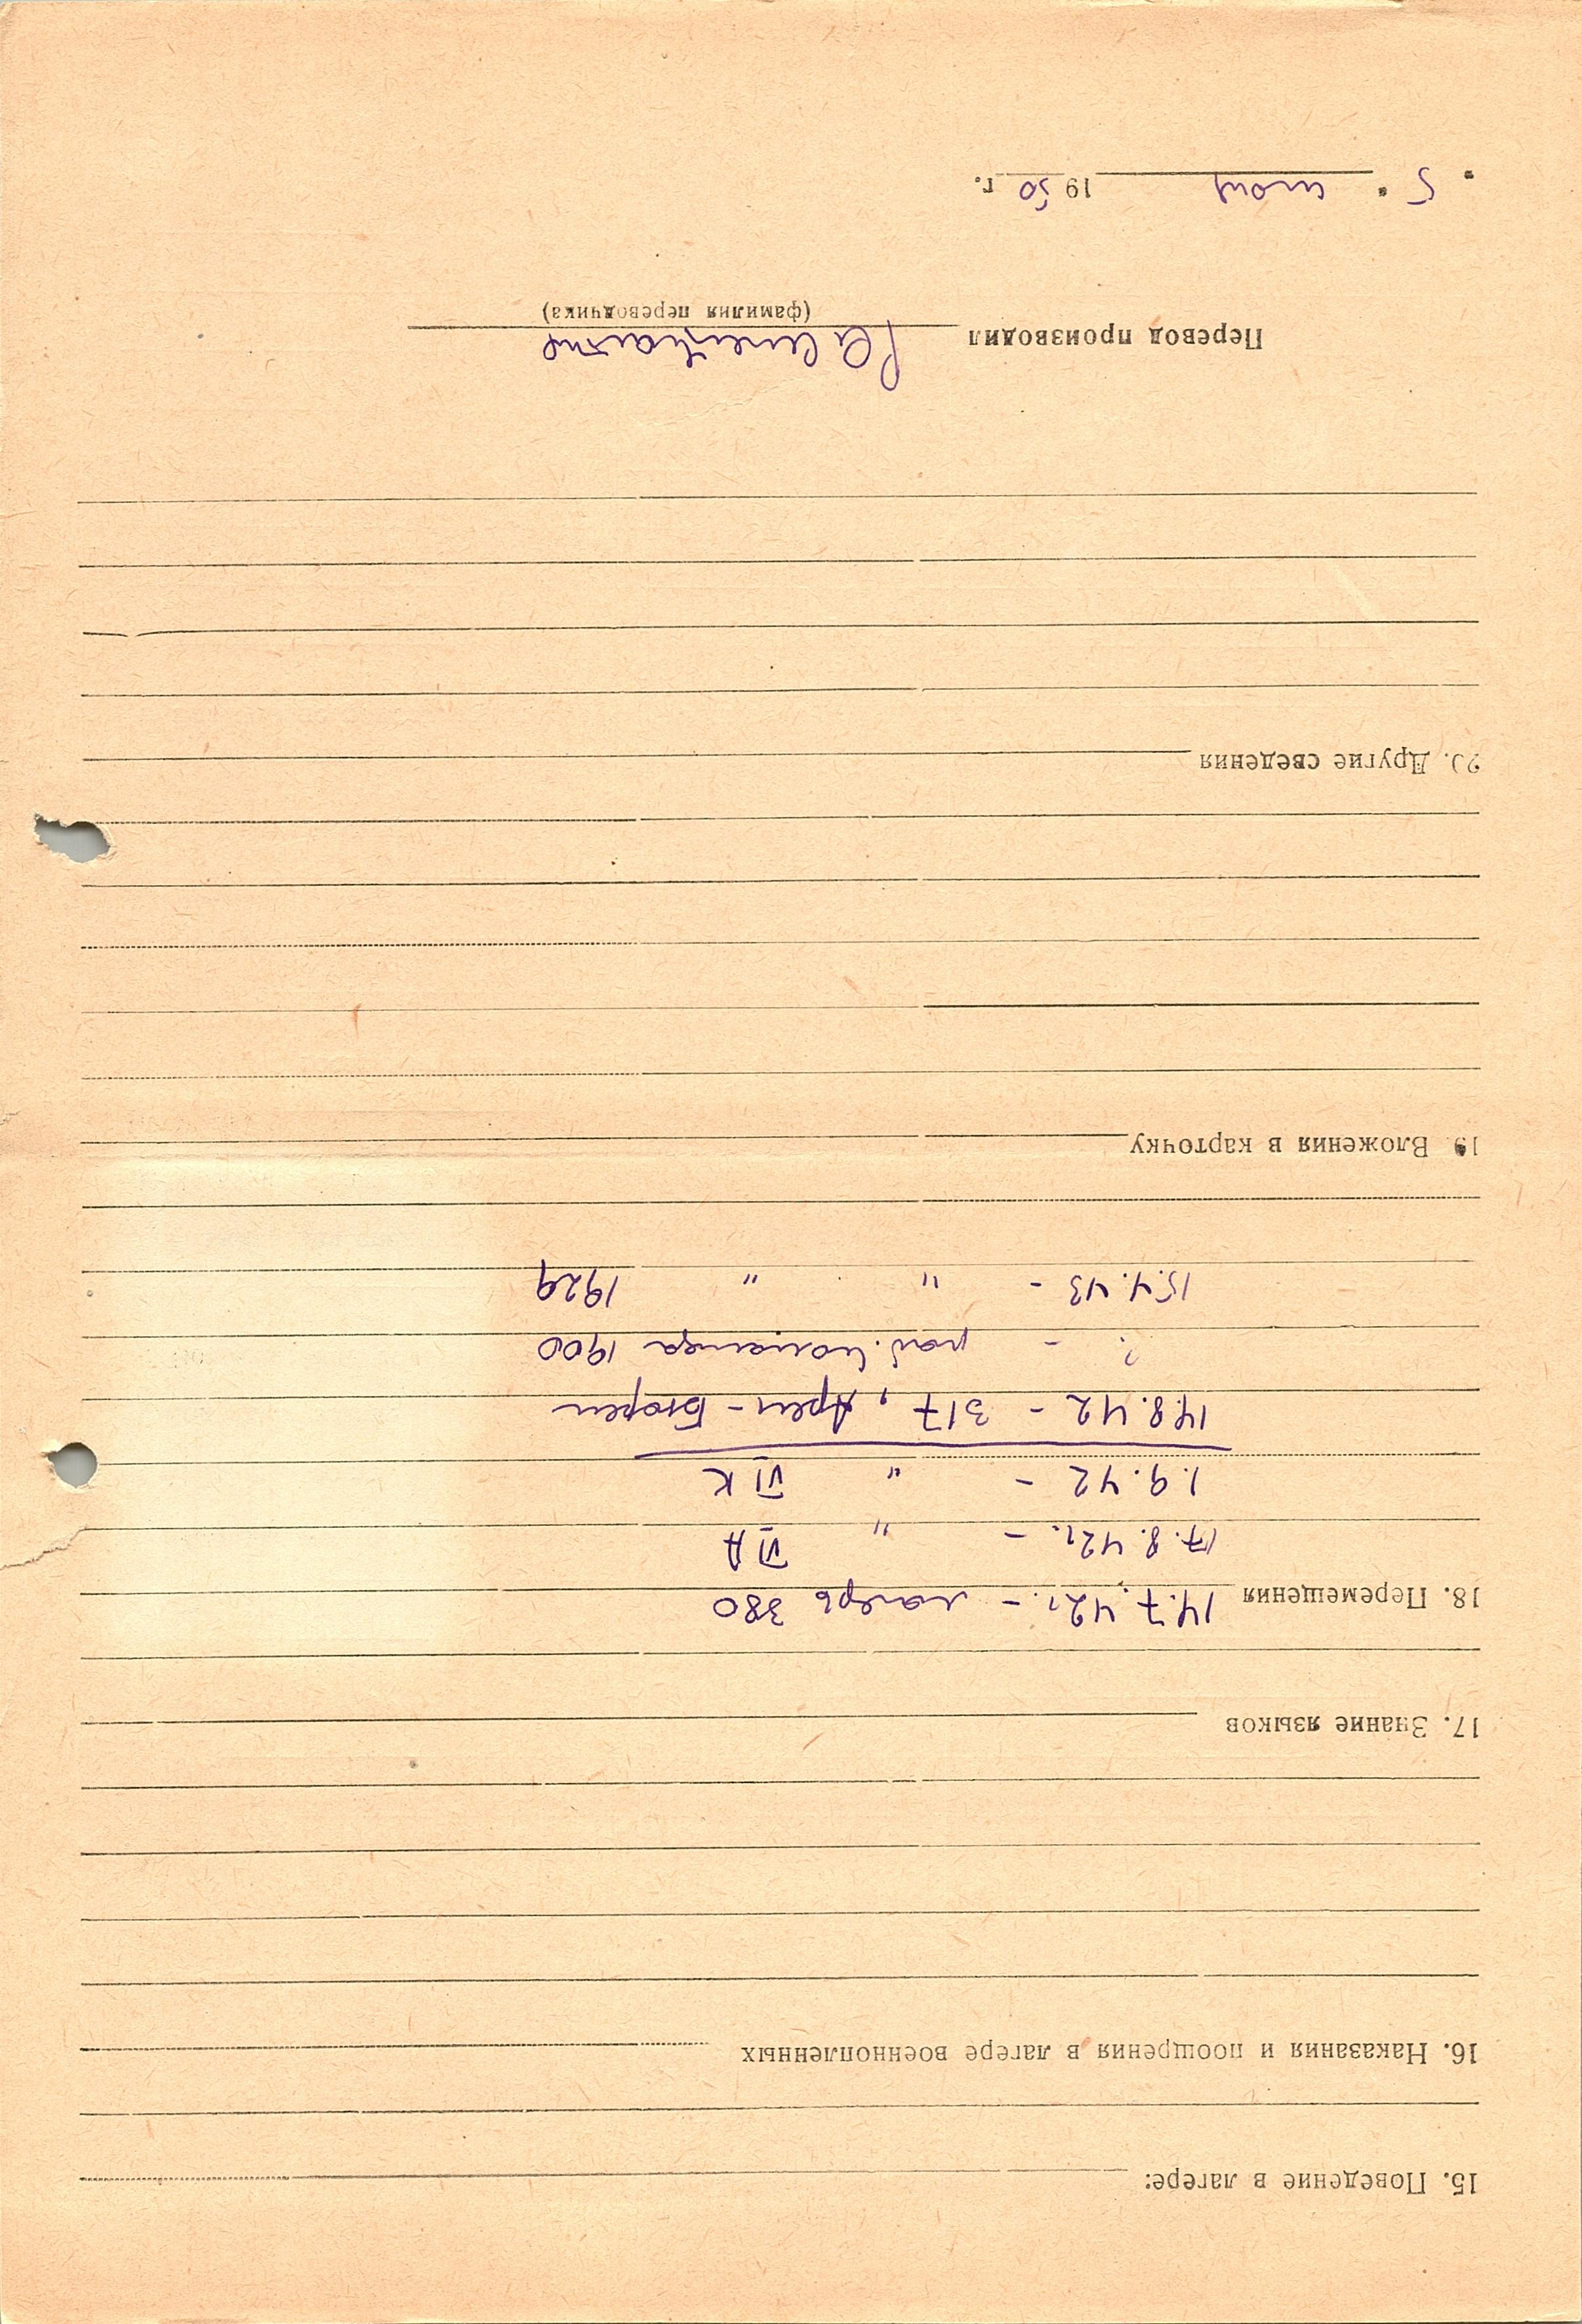 15. Поведение в лагере:
16. Наказания и поощрения в лагере военнопленных
17. Знание языков
18. Перемещения 14.7.42г. – лагерь 380
17.8.42г. – " VI A
1.9.42 – " VI K
14.8.42 – 317, Арен-Бюрен
? – раб. команда 1900
15.4.43 – " " 1929
19. Вложения в карточку
20. Другие сведения
Перевод производил
(фамилия переводчика)
5 " 1950 г.